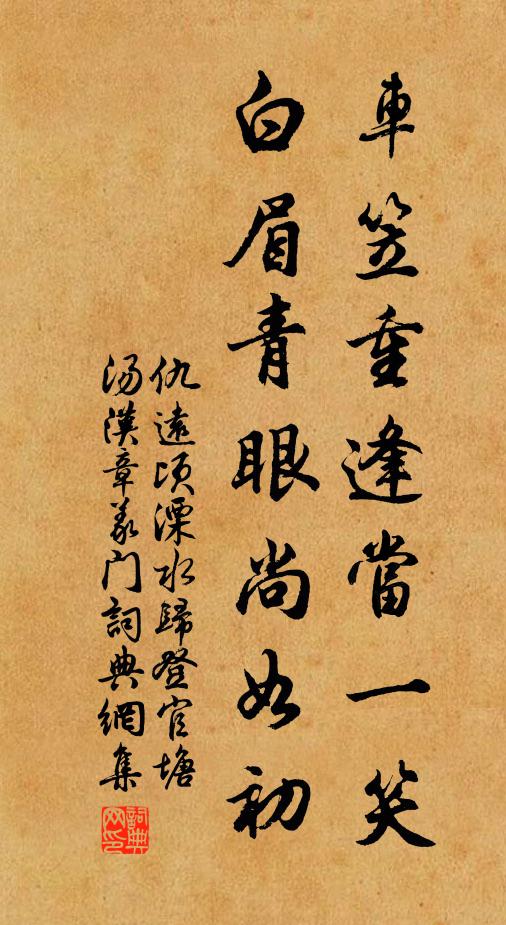 車笠重逢當一笑
白眉青眼尚如初
仇遠頃溧水歸登官塘
湯漢章義門詞典網集
詞典网印